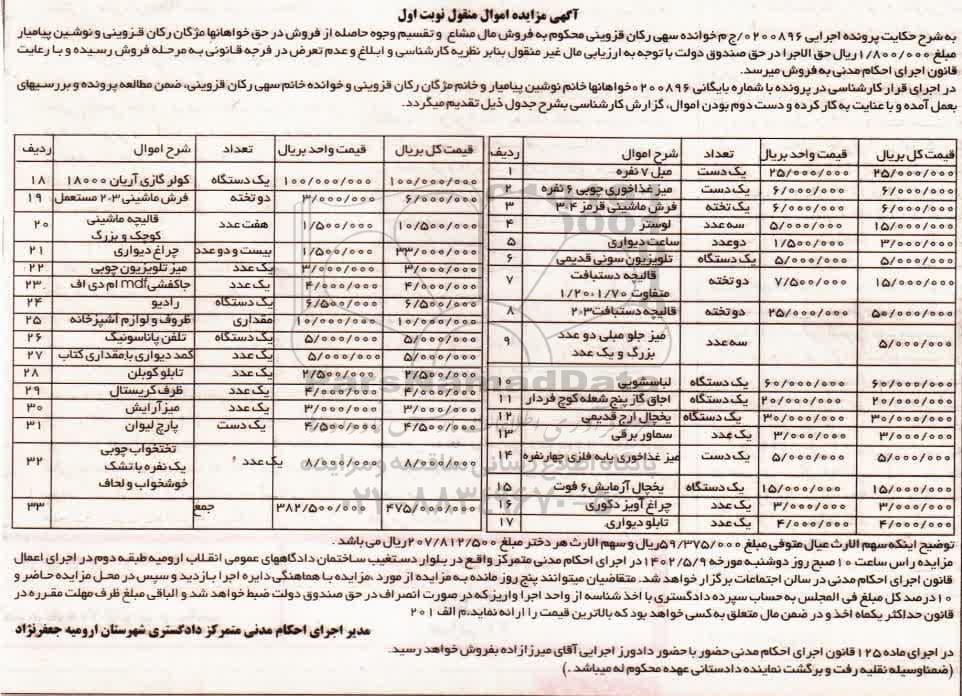 آگهی مزایده اموال منقول نوبت اول
به شرح حکایت پرونده اجرایی ۰۲۰۰۸۹۶/ج م خوانده سهی رکان قزوینی محکوم به فروش مال مشاع و تقسیم وجوه حاصله از فروش در حق خواهانها مژگان رکان قزوینی و نوشین پیامیار
مبلغ ۱/۸۰۰/۰۰۰ ریال حق الاجرا در حق صندوق دولت با توجه به ارزیابی مال غیر منقول بنابر نظریه کارشناسی و ابلاغ و عدم تعرض در فرجه قانونی به مرحله فروش رسیده و با رعایت
قانون اجرای احکام مدنی به فروش میرسد.
در اجرای قرار کارشناسی در پرونده با شماره بایگانی ۰۲۰۰۸۹۶ خواهانها خانم نوشین پیامیار و خانم مژگان رکان قزوینی و خوانده خانم سهی رکان قزوینی، ضمن مطالعه پرونده و بررسیهای
بعمل آمده و با عنایت به کار کرده و دست دوم بودن اموال، گزارش کارشناسی بشرح جدول ذیل تقدیم میگردد.
ردیف شرح اموال تعداد قیمت واحد بریال قیمت کل بریال
۱ مبل ۷ نفره یک دست ۲۵/۰۰۰/۰۰۰ ۲۵/۰۰۰/۰۰۰
۲ میز غذاخوری چوبی ۶ نفره یک دست ۶/۰۰۰/۰۰۰ ۶/۰۰۰/۰۰۰
۳ فرش ماشینی قرمز ۴*۳ یک تخته ۶/۰۰۰/۰۰۰ ۶/۰۰۰/۰۰۰
۴ لوستر سه عدد ۵/۰۰۰/۰۰۰ ۱۵/۰۰۰/۰۰۰
۵ ساعت دیواری دو عدد ۱/۵۰۰/۰۰۰ ۳/۰۰۰/۰۰۰
۶ تلویزیون سونی قدیمی یک دستگاه ۵/۰۰۰/۰۰۰ ۵/۰۰۰/۰۰۰
۷ قالیچه دستبافت
متفاوت ۱/۷۰*۱/۲۰ دو تخته ۷/۵۰۰/۰۰۰ ۱۵/۰۰۰/۰۰۰
۸ قالیچه دستبافت ۳*۲ دو تخته ۲۵/۰۰۰/۰۰۰ ۵۰/۰۰۰/۰۰۰
۹ میز جلو مبلی دو عدد
بزرگ و یک عدد سه عدد ۵/۰۰۰/۰۰۰
لباسشویی یک دستگاه ۶۰/۰۰۰/۰۰۰ ۶۰/۰۰۰/۰۰۰
۱۱ اجاق گاز پنج شعله کوچ فردار یک دستگاه ۲۰/۰۰۰/۰۰۰ ۲۰/۰۰۰/۰۰۰
۱۲ یخچال ارج قدیمی یک دستگاه ۳۰/۰۰۰/۰۰۰ ۳۰/۰۰۰/۰۰۰
۱۳ سماور برقی یک عدد ۳/۰۰۰/۰۰۰ ۳/۰۰۰/۰۰۰
۱۴ میز غذاخوری پایه فلزی چهارنفره یک دست ۵/۰۰۰/۰۰۰ ۵/۰۰۰/۰۰۰
۱۵ یخچال آزمایش ۶ فوت یک دستگاه ۱۵/۰۰۰/۰۰۰ ۱۵/۰۰۰/۰۰۰
۱۶ چراغ آویز دکوری یک عدد ۳/۰۰۰/۰۰۰ ۳/۰۰۰/۰۰۰
۱۷ تابلو دیواری یک عدد ۴/۰۰۰/۰۰۰ ۴/۰۰۰/۰۰۰
ردیف شرح اموال تعداد قیمت واحد بریال قیمت کل بریال
۱۸ کولر گازی آریان ۱۸۰۰۰ یک دستگاه ۱۰۰/۰۰۰/۰۰۰ ۱۰۰/۰۰۰/۰۰۰
۱۹ فرش ماشینی ۳*۲ مستعمل دو تخته ۳/۰۰۰/۰۰۰ ۶/۰۰۰/۰۰۰
۲۰ قالیچه ماشینی
کوچک و بزرگ هفت عدد ۱/۵۰۰/۰۰۰ ۱۰/۵۰۰/۰۰۰
۲۱ چراغ دیواری بیست و دو عدد ۱/۵۰۰/۰۰۰ ۳۳/۰۰۰/۰۰۰
۲۲ میز تلویزیون چوبی یک عدد ۳/۰۰۰/۰۰۰ ۳/۰۰۰/۰۰۰
۲۳ جاکفشی mdf ام دی اف یک عدد ۴/۰۰۰/۰۰۰ ۴/۰۰۰/۰۰۰
۲۴ رادیو یک دستگاه ۶/۵۰۰/۰۰۰ ۶/۵۰۰/۰۰۰
۲۵ ظروف و لوازم آشپزخانه مقداری ۱۰/۰۰۰/۰۰۰ ۱۰/۰۰۰/۰۰۰
۲۶ تلفن پاناسونیک یک دستگاه ۵/۰۰۰/۰۰۰ ۵/۰۰۰/۰۰۰
۲۷ کمد دیواری با مقداری کتاب یک عدد ۵/۰۰۰/۰۰۰ ۵/۰۰۰/۰۰۰
۲۸ تابلو کوبلن یک عدد ۲/۵۰۰/۰۰۰ ۲/۵۰۰/۰۰۰
۲۹ ظرف کریستال یک عدد ۴/۰۰۰/۰۰۰ ۴/۰۰۰/۰۰۰
۳۰ میز آرایش یک عدد ۳/۰۰۰/۰۰۰ ۳/۰۰۰/۰۰۰
۳۱ پارچ لیوان یک دست ۴/۵۰۰/۰۰۰ ۴/۵۰۰/۰۰۰
۳۲ تختخواب چوبی
یک نفره با تشک
خوشخواب و لحاف یک عدد ۸/۰۰۰/۰۰۰ ۸/۰۰۰/۰۰۰
۳۳ جمع ۳۸۲/۵۰۰/۰۰۰ ۴۷۵/۰۰۰/۰۰۰
توضیح اینکه سهم الارث عیال متوفی مبلغ ۵۹/۳۷۵/۰۰۰ ریال و سهم الارث هر دختر مبلغ ۲۰۷/۸۱۲/۵۰۰ ریال می باشد.
مزایده راس ساعت ۱۰ صبح روز دوشنبه مورخه ۱۴۰۲/۵/۹ در اجرای احکام مدنی متمرکز واقع در بلوار دستغیب ساختمان دادگاههای عمومی انقلاب ارومیه طبقه دوم در اجرای اعمال
قانون اجرای احکام مدنی در سالن اجتماعات برگزار خواهد شد. متقاضیان میتوانند پنج روز مانده به مزایده از مورد مزایده با هماهنگی دایره اجرا بازدید و سپس در محل مزایده حاضر و
۱۰ درصد کل مبلغ فی المجلس به حساب سپرده دادگستری با اخذ شناسه از واحد اجرا واریز که در صورت انصراف در حق صندوق دولت ضبط خواهد شد و الباقی مبلغ ظرف مهلت مقرره در
قانون حداکثر یکماه اخذ و در ضمن مال متعلق به کسی خواهد بود که بالاترین قیمت را ارائه نماید. م الف ۲۰۱
مدیر اجرای احکام مدنی متمرکز دادگستری شهرستان ارومیه جعفرنژاد
در اجرای ماده ۱۲۵ قانون اجرای احکام مدنی حضور با حضور دادورز اجرایی آقای میرزازاده بفروش خواهد رسید.
(ضمنا وسیله نقلیه رفت و برگشت نماینده دادستانی عهده محکوم له میباشد.)
ParsNamadData
پایگاه اطلاع رسانی مناقصه و مزایده